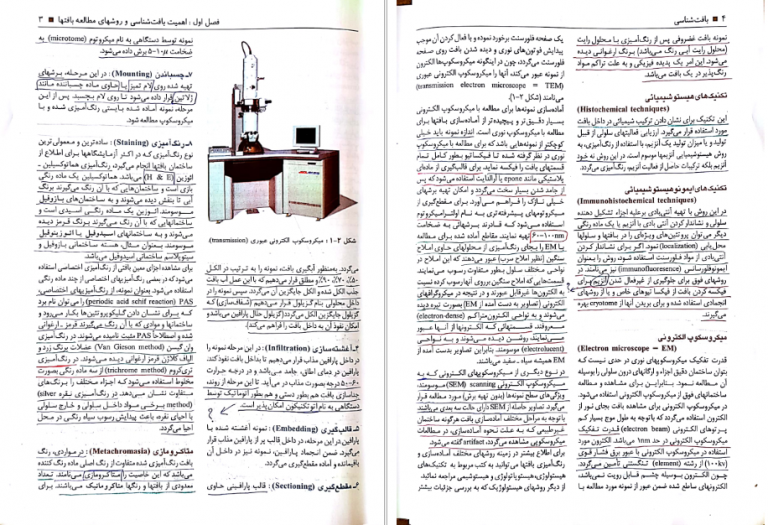 فصل اول : اهمیت بافت‌شناسی و روشهای مطالعه بافتها ■ ۳
شکل ۲-۱ : میکروسکوپ الکترونی عبوری (transmission)
گردد. به‌منظور آبگیری بافت نمونه را به ترتیب در الکل
الکل گذشته شده و الکل جایگزین آن گردد. سپس نمونه را در
داخل محلولی بنام گزیلول قرار می‌دهیم (شفاف‌سازی) که
گزیلول جایگزین الکل می‌گردد (گزیلول حلال پارافین می‌باشد و
امکان نفوذ آن به داخل بافت را فراهم می‌کند).
۴ـ آغشته‌سازی (Infiltration) : در این مرحله نمونه را
در داخل پارافین مذاب قرار می‌دهیم تا به داخل بافت نفوذ کند.
پارافین در دمای اطاق، جامد می‌باشد و در درجه حرارت
۶۰-۵۰ درجه بصورت مذاب در می‌آید. تا این مرحله از روند،
جداسازی بافت هم بطور دستی و هم بطور اتوماتیک توسط
دستگاهی به نام اتوتکنیکون امکان پذیر است.
۵ـ قالب‌گیری (Embedding) : نمونه آغشته شده با
پارافین در این مرحله، در داخل قالب پر از پارافین مذاب قرار
می‌گیرد. ضمن انجماد پارافین، نمونه نیز در داخل آن
باقیمانده و آماده مقطع‌گیری می‌گردد.
۶ـ مقطع‌گیری (Sectioning) : قالب پارافینی حاوی
نمونه توسط دستگاهی به نام میکروتوم (microtome) به
ضخامت ۵-۱۰μ برش داده می‌شود.
۷ـ چسباندن (Mounting) : در این مرحله، برشهای
تهیه شده روی لام تمیز با حاوی ماده چسباننده مانند
ژلاتین قرار داده می‌شود تا روی لام بچسبد. پس از این
مرحله نمونه آماده شده بایستی رنگ‌آمیزی شده و با
میکروسکوپ مطالعه شود.
۸ـ رنگ‌آمیزی (Staining) : ساده‌ترین و معمولی‌ترین
نوع رنگ‌آمیزی که در اکثر آزمایشگاهها برای اطلاع از
ساختمان بافتها انجام می‌گیرد، رنگ‌آمیزی هماتوکسیلین ـ
ائوزین (H & E) می‌باشد. هماتوکسیلین یک ماده رنگی
بازی است و ساختمان‌هایی که با آن رنگ می‌گیرند برنگ
آبی تا بنفش دیده می‌شوند و به ساختمان‌های بازوفیل
موسومند. ائوزین یک ماده رنگی اسیدی است و
ساختارهایی که با آن رنگ می‌گیرند برنگ قرمز دیده
می‌شوند و به ساختمانهای اسیدوفیل یا ائوزینوفیل
موسومند. بعنوان مثال، هسته ساختمانی بازوفیل و
سیتوپلاسم ساختمانی اسیدوفیل می‌باشد.
برای مشاهده اجزای معین بافتی از رنگ‌آمیزی اختصاصی استفاده
می‌شود که در بعضی رنگ‌آمیزیهای اختصاصی از چند ماده رنگی
استفاده می‌شود. بعنوان نمونه، از رنگ‌آمیزیهای اختصاصی،
PAS (periodic acid schiff reaction) را می‌توان نام برد
که برای نشان دادن گلیکوپروتئین‌ها بکار می‌رود و
ساختمانها و موادی که با آن رنگ می‌گیرند قرمز ـ ارغوانی
شده و اصطلاحاً PAS مثبت نامیده می‌شوند. در رنگ‌آمیزی
وان گیسن (Van Gieson method) عضلات برنگ زرد و
الیاف کلاژن قرمز ارغوانی دیده می‌شوند. در رنگ‌آمیزی
تری‌کروم (trichrome method) از سه ماده رنگی بصورت
مخلوط استفاده می‌شود که اجزاء مختلف را به رنگ‌های
متفاوت نشان می‌دهد. در رنگ‌آمیزی نقره (silver
method) برخی مواد داخل سلولی و خارج سلولی
با احیای نقره باعث پیدایش رسوب سیاه رنگی در محل
احیا می‌گردد.
متاکرومازی (Metachromasia) : در مواردی، رنگ
بافت رنگ‌آمیزی شده متفاوت از رنگ اصلی ماده رنگ کننده
می‌باشد که این خاصیت را متاکرومازی می‌نامند. تعداد
معدودی از بافتها و رنگها متاکروماتیک می‌باشند. برای
۴ ■ بافت‌شناسی
نمونه بافت غضروفی پس از رنگ‌آمیزی با محلول رایت
(محلول رایت آبی رنگ می‌باشد) برنگ ارغوانی دیده
می‌شود. این امر یک پدیده فیزیکی و به علت تراکم مواد
رنگ‌پذیر در یک بافت می‌باشد.
تکنیک‌های هیستوشیمیائی
(Histochemical techniques)
این تکنیک برای نشان دادن ترکیب شیمیائی در داخل بافت
مورد استفاده قرار می‌گیرد. ارزیابی فعالیتهای سلولی از قبل
تولید و یا میزان تولید یک آنزیم، با استفاده از رنگ‌آمیزی، به
روش هیستوشیمیایی آنزیمها موسوم است. در این روش نه خود
آنزیم بلکه ترکیبات حاصل از فعالیت آنزیم، رنگ‌آمیزی می‌گردد.
تکنیک‌های ایمونوهیستوشیمیائی
(Immunohistochemical techniques)
در این روش با تهیه آنتی‌بادی برعلیه اجزاء تشکیل دهنده
سلولی و نشاندار کردن آنتی بادی با آنزیم یا یک ماده رنگی
دیگر می‌توان پروتئین‌های ویژه‌ای را در بافتها و سلولها
محل‌یابی (localization) نمود. اگر برای نشاندار کردن
آنتی‌بادی از مواد فلورسنت استفاده شود، روش را بعنوان
ایمونوفلورسانس (immunofluoresence) نیز می‌نامند. در
روشهای فوق برای جلوگیری از غیرفعال شدن آنزیم، برای
فیکسه کردن بافت از فیکساتیوهای خاص و یا از روشهای
انجمادی استفاده شده و برای بریدن آنها از cryotome بهره
می‌گیرند.
میکروسکوپ الکترونی
(Electron microscope – EM)
قدرت تفکیک میکروسکوپهای نوری در حدی نیست که
بتوان ساختمان دقیق اجزاء و ارگانهای درون سلولی را بوسیله
آن مطالعه نمود. بنابراین برای مشاهده و مطالعه
ساختمانهای فوق از میکروسکوپ الکترونی استفاده می‌شود.
در میکروسکوپ الکترونی برای مشاهده بافت بجای نور از
الکترون استفاده می‌گردد که با توجه به طول موج بسیار کم
پرتوهای الکترونی (electron beam) قدرت تفکیک
میکروسکوپ الکترونی در حد ۱nm می‌باشد. الکترون مورد
استفاده در میکروسکوپ الکترونی با عبور برق فشار قوی
(۱۰۰kv) از رشته (element) تنگستنی تأمین می‌گردد.
چون الکترون بوسیله چشم قابل رویت نمی‌باشد،
الکترونهای ساطع شده ضمن عبور از نمونه مورد مطالعه با
یک صفحه فلورسین برخورد نموده و با فعال کردن آن موجب
پیدایش فوتون‌های نوری و دیده شدن بافت روی صفحه
فلورسنت می‌گردد، چون در اینگونه میکروسکوپ‌ها الکترون
از نمونه عبور می‌کند، آنها را میکروسکوپ الکترونی عبوری
(transmission electron microscope = TEM)
می‌نامند (شکل ۲-۱).
آماده‌سازی نمونه‌ها برای مطالعه با میکروسکوپ الکترونی
بسیار دقیق‌تر و پیچیده‌تر از آماده‌سازی بافتها برای
مطالعه با میکروسکوپ نوری است. اندازه نمونه باید خیلی
کوچکتر از نمونه‌هایی باشد که برای مطالعه با میکروسکوپ
نوری در نظر گرفته شده تا فیکساتیو بطور کامل تمام
قسمتهای بافت را فیکسه نماید. برای قالب‌گیری از ماده‌ای
پلاستیکی مانند epone یا آرالدایت استفاده می‌شود که پس
از جامد شدن بسیار سخت می‌گردد و امکان تهیه برشهای
خیلی نازک را فراهم می‌آورد. برای مقطع‌گیری از
میکروتومهای پیشرفته‌تری به نام اولترامیکروتوم
استفاده می‌شود که قادرند برشهایی به ضخامت
۶۰-۱۰۰nm تهیه نمایند. مقاطع آماده شده برای مطالعه
با EM را بجای رنگ‌آمیزی از محلولهای حاوی املاح
سنگین (نظیر املاح سرب) عبور می‌دهند که این املاح در
نواحی مختلف سلول بطور متفاوت رسوب می‌نمایند.
قسمت‌هایی که املاح سنگین برروی آنها رسوب کرده نسبت
به الکترون‌ها غیرقابل عبورند و در نتیجه در میکروگرافهای
الکترونی (تصاویر به دست آمده از EM) بصورت تیره دیده
می‌شوند و به نواحی الکترون‌متراکم (electron-dense)
معروفند. قسمتهائی که الکترونها از آنها عبور
می‌نمایند، روشن دیده می‌شوند و به نواحی
(electronlucent) موسومند. بنابراین تصاویر بدست آمده از
EM همیشه سیاه ـ سفید می‌باشند.
در نوع دیگری از میکروسکوپهای الکترونی که به
میکروسکوپ الکترونی scanning (SEM) موسومند،
ویژگی‌های سطح نمونه‌ها (بدون تهیه برش) مورد مطالعه قرار
می‌گیرد. تصاویر حاصله از SEM دارای حالت سه بعدی می‌باشند.
باتوجه به مراحل مختلف آماده‌سازی بافت هرگونه ساختمان
غیرطبیعی که به علت نحوه آماده‌سازی، در مطالعات
میکروسکوپی مشاهده می‌گردد، artifact گفته می‌شود.
برای اطلاع بیشتر در زمینه روشهای مختلف آماده‌سازی و
رنگ‌آمیزی بافتها می‌توانید به کتب مربوط به تکنیک‌های
هیستولوژی، هیستوپاتولوژی و هیستوشیمی مراجعه نمائید.
از دیگر روشهای هیستولوژیک که به بررسی جزئیات بیشتر